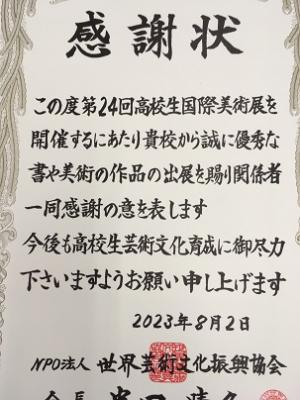 感謝状
この度第24回高校生国際美術展を
開催するにあたり貴校から誠に優秀な
書や美術の作品の出展を賜り関係者
一同感謝の意を表します
今後も高校生芸術文化育成に御尽力
下さいますようお願い申し上げます
2023年8月2日
NPO法人 世界芸術文化振興協会
会長 半田晴久